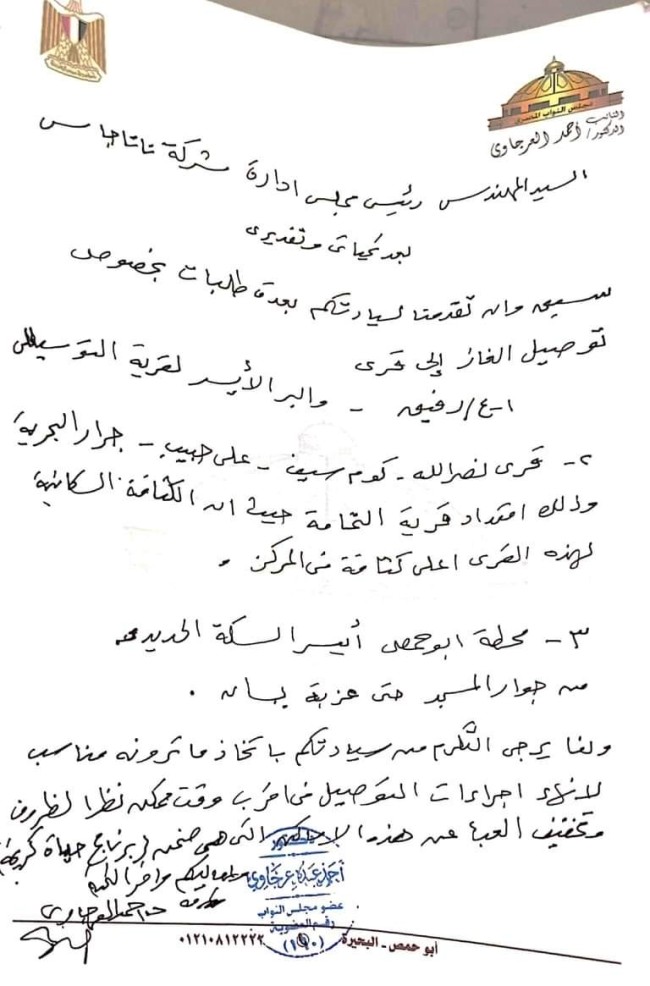 مجلس النواب المصري
النائب
الدكتور/ أحمد العرجاوى
السيد المهندس رئيس مجلس ادارة شركة ناتاجاس
بعد تحياتى وتقديرى
سبق وان تقدمنا لسيادتكم بعدة طلبات بخصوص
توصيل الغاز إلى قرى
١- ع/ رفيق - والبر الأيسر لقرية التوسيللى
٢- قرى نصر الله - كوم سيف - على حبيب - جرار البحرية
وذلك امتداد قرية النخامة حيث ان الكثافة السكانية
لهذه القرى اعلى كثافة فى المركز .
٣- محطة ابو حمص أيسر السكة الحديد
من جوار المسجد حتى عزبة يسان .
ولذا يرجى التكرم من سيادتكم باتخاذ ما ترونه مناسب
لانهاء اجراءات التوصيل فى اقرب وقت ممكن نظرا لظروف
وتخفيف العبأ عن هذه الاماكن التى هى ضمن برنامج حياة كريمة
ولمعاليكم وافر
د. احمد العرجاوى
أحمد عبده عرجاوي
عضو مجلس النواب
رقم العضوية
(١٩٠)
أبو حمص - البحيرة ٠١٢١٠٨١٢٢٢٢